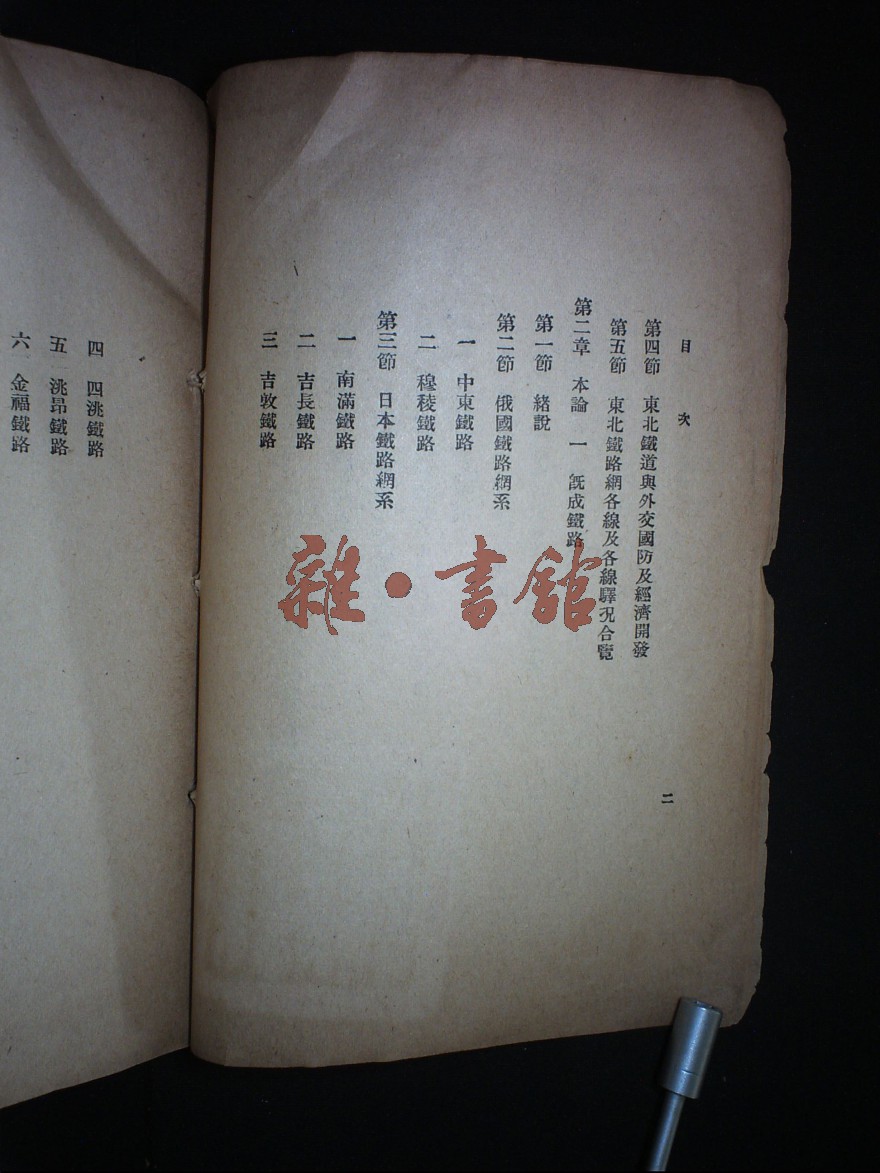 目次
第四節 東北鐵道與外交國防及經濟開發
第五節 東北鐵路網各線及各線驛況合覽
第二章 本論 一 旣成鐵路
第一節 緒說
第二節 俄國鐵路網系
一 中東鐵路
二 穆稜鐵路
第三節 日本鐵路網系
一 南滿鐵路
二 吉長鐵路
三 吉敦鐵路
二
四 四洮鐵路
五 洮昂鐵路
六 金福鐵路
雜·書館